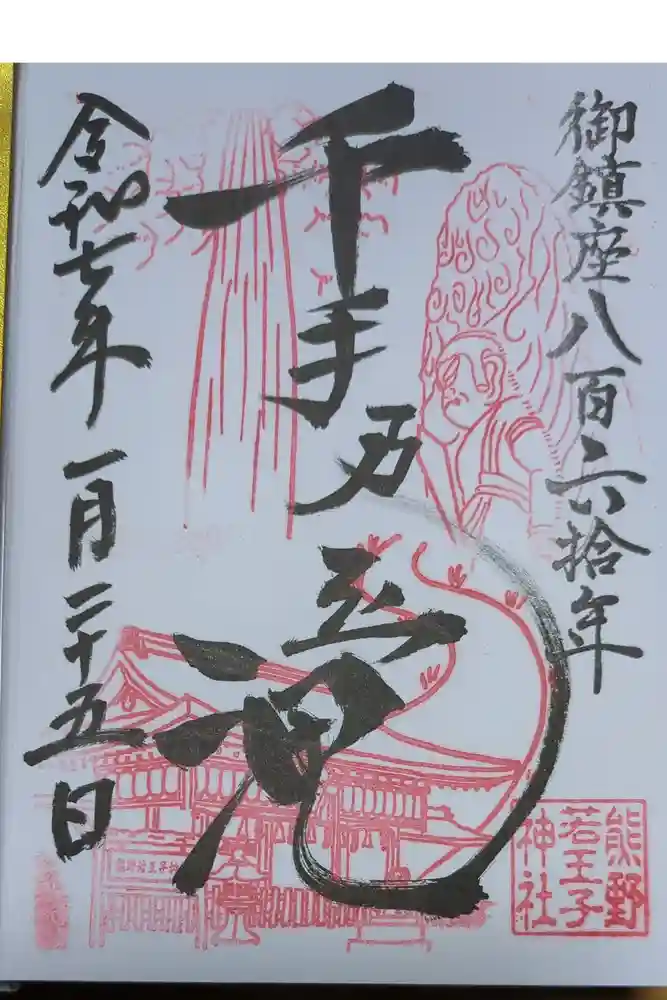 御鎮座八百六拾年
千手乃瀧
令和七年一月二十五日
熊野
若王子
神社